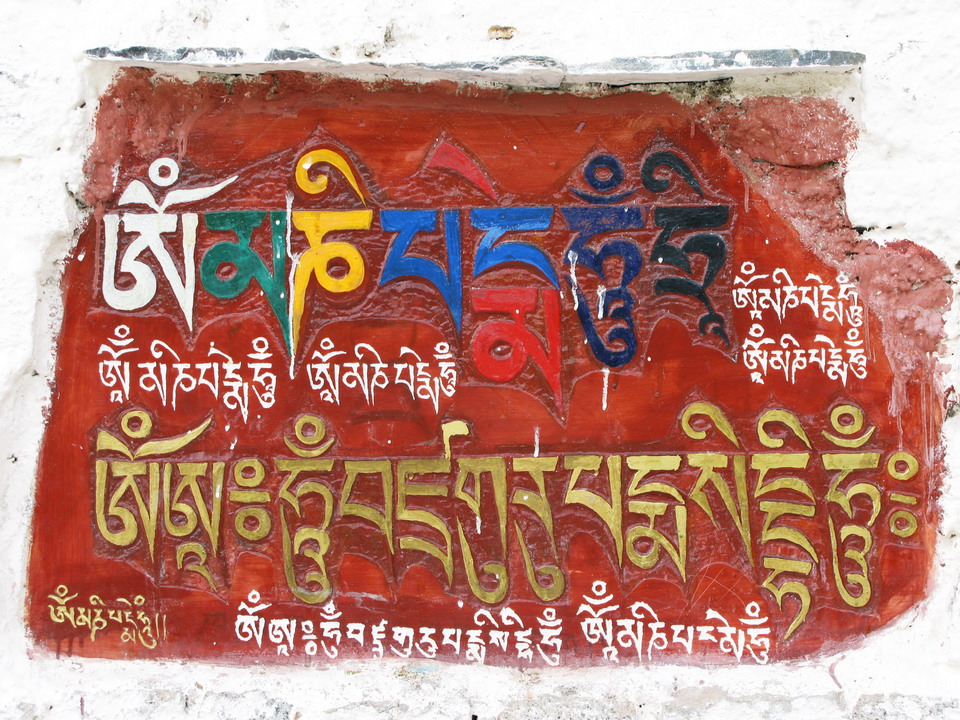 ཨོཾ མ ཎི པ དྨེ ཧཱུྃ ཧྲི
ཨོཾ མཎིཔདྨེཧཱུྃ
ཨོཾ མཎིཔདྨེཧཱུྃ
ཨོཾ མཎིཔདྨེཧཱུྃ ཨོཾ མཎིཔདྨེཧཱུྃ
ཨོཾཨཱཿཧཱུྃབཛྲགུརུཔདྨསིདྡྷིཧཱུྃ༔
ཨོཾམཎིཔདྨེཧཱུྃ།།
ཨོཾཨཱཿཧཱུྃབཛྲགུརུཔདྨསིདྡྷིཧཱུྃ ཨོཾམཎིཔདྨེཧཱུྃ